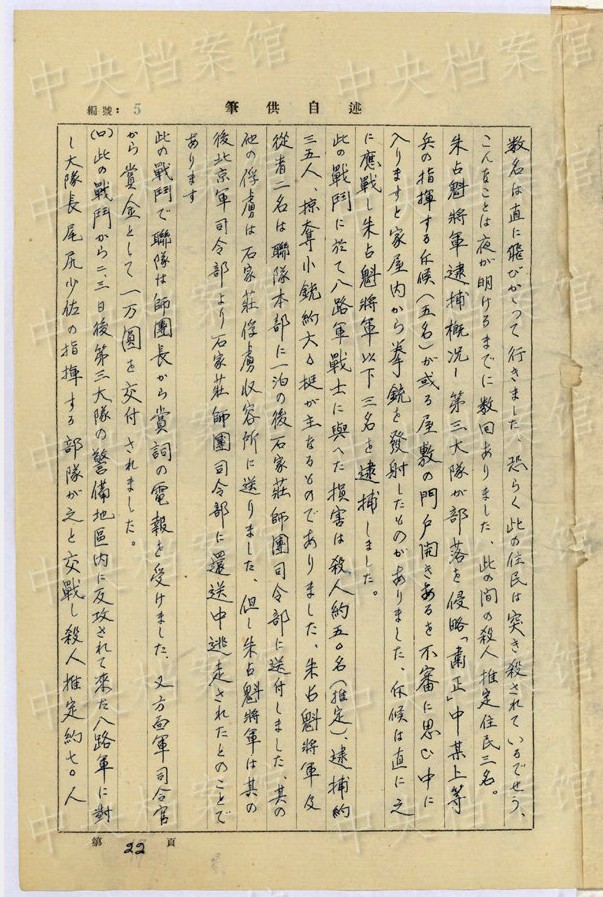 述自供筆
編號: 5
数名は直に飛びかゝって行きました、恐らく此の住民は突き殺されているでせう、
こんなことは夜が明けるまでに数回ありました、此の間の殺人推定住民三名。
朱占魁将軍逮捕概況ー第三大隊が部落を侵略「粛正」中某上等
兵の指揮する斥候(五名)が或る屋敷の門戸開きあるを不審に思ひ中に
入りますと家屋内から拳銃を發射したものがありました、斥候は直に之
に應戦し朱占魁将軍以下三名を逮捕しました。
此の戰鬥に於て八路軍戰士に與へた損害は殺人約五〇名(推定)、逮捕約
三五人、掠奪小銃約六〇挺が主なるものでありました、朱占魁將軍及
從者二名は聯隊本部に一泊の後石家莊師團司令部に送付しました、其の
他の俘虜は石家莊俘虜収容所に送りました、但し朱占魁將軍は其の
後北京軍司令部より石家莊師團司令部に還送中逃走されたとのことで
あります
此の戰鬥で聯隊は師團長から賞詞の電報を受けました、又方面軍司令官
から賞金として一万圓を交付されました。
(ロ)此の戰鬥から二、三日後第三大隊の警備地區内に反攻されて来た八路軍に對
し大隊長尾尻少佐の指揮する部隊が之と交戰し殺人推定約七〇人
第 22 頁
中央档案馆